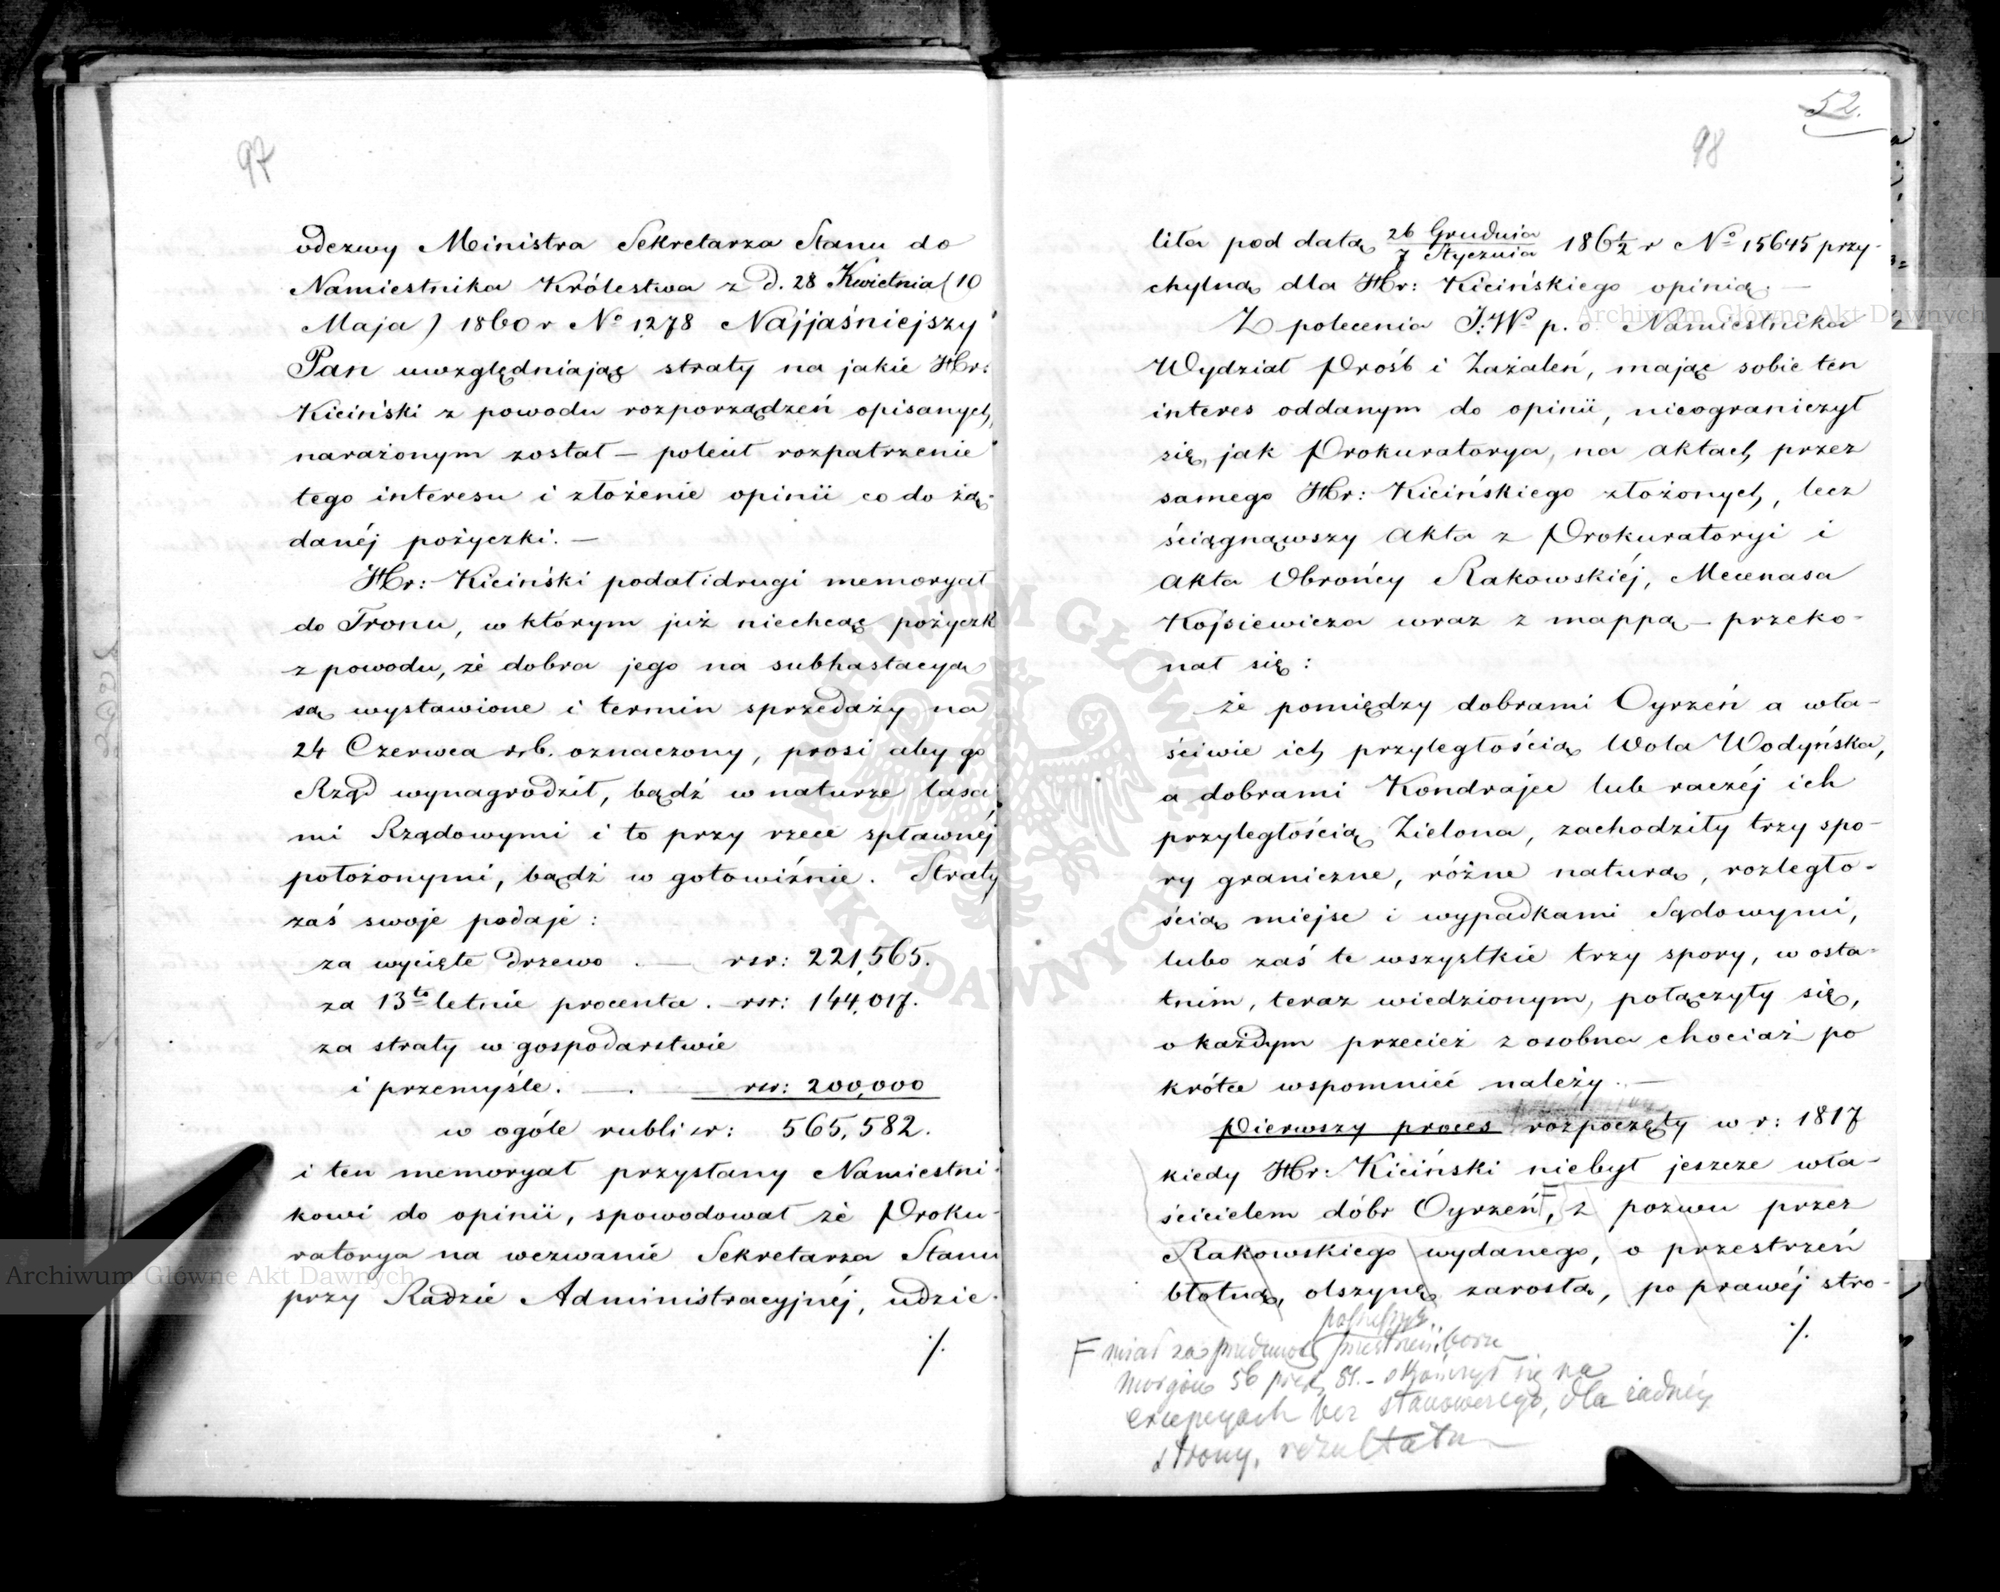 97
odezwy Ministra Sekretarza Stanu do
Namiestnika Królestwa z d. 28 Kwietnia (10
Maja) 1860 r No 1278 Najjaśniejszy
Pan uwzględniając straty na jakie Hr:
Kiciński z powodu rozporządzeń opisanych,
narażonym został – polecił rozpatrzenie
tego interesu i złożenie opinii co do żą-
danéj pożyczki. —
Hr: Kiciński podał i drugi memoryał
do Tronu, w którym już niechcąc pożyczk
z powodu, że dobra jego na subhastacyą
są wystawione i termin sprzedaży na
24 Czerwca r.b. oznaczony, prosi aby go
Rząd wynagrodził, bądź w naturze lasa
mi Rządowymi i to przy rzece spławnéj
położonymi, bądź w gotowiźnie. Straty
zaś swoje podaje:
za wycięte drzewo . — rsr: 221,565.
za 13to letnie procenta. — rsr: 144,017.
za straty w gospodarstwie
i przemyśle. — . — rsr: 200,000
w ogóle rubli sr: 565,582.
i ten memoryał przysłany Namiestni-
kowi do opinii, spowodował że Proku-
ratorya na wezwanie Sekretarza Stanu
przy Radzie Administracyjnéj, udzie-
./.
52.
98
liła pod datą 26 Grudnia / 7 Stycznia 186 1/2 r No 15645 przy-
chylną dla Hr: Kicińskiego opinią. —
Z polecenia J:W. p. o. Namiestnika
Wydział Próśb i Zażaleń, mając sobie ten
interes oddanym do opinii, nieograniczył
się, jak Prokuratorya, na aktach przez
samego Hr: Kicińskiego złożonych, lecz
ściągnąwszy akta z Prokuratoryi i
akta Obrońcy Rakowskiéj, Mecenasa
Kojsiewicza wraz z mappą – przeko-
nał się:
że pomiędzy dobrami Oyrzeń a wła-
ściwie ich przyległością Wola Wodyńska,
a dobrami Kondrajec lub raczéj ich
przyległością Zielona, zachodziły trzy spo-
ry graniczne, różne naturą, rozległo-
ścią miejsc i wypadkami Sądowymi,
lubo zaś te wszystkie trzy spory, w osta-
tnim, teraz wiedzionym, połączyły się,
o każdym przecież z osobna chociaż po
krótce wspomnieć należy. —
Pierwszy proces rozpoczęty w r: 1817
kiedy Hr: Kiciński niebył jeszcze wła-
ścicielem dóbr Oyrzeń F, z pozwu przez
Rakowskiego wydanego, o przestrzeń
błotną, olszyną zarosłą, po prawéj stro-
./.
F miał za przedmiot przestrzeń boru
morgów 56 pręt. 81. – skończył się na
excepcyach bez stanowczego, dla żadnéj
strony, rezultatu —
Archiwum Główne Akt Dawnych
Archiwum Główne Akt Dawnych
ARCHIWUM GŁÓWNE AKT DAWNYCH